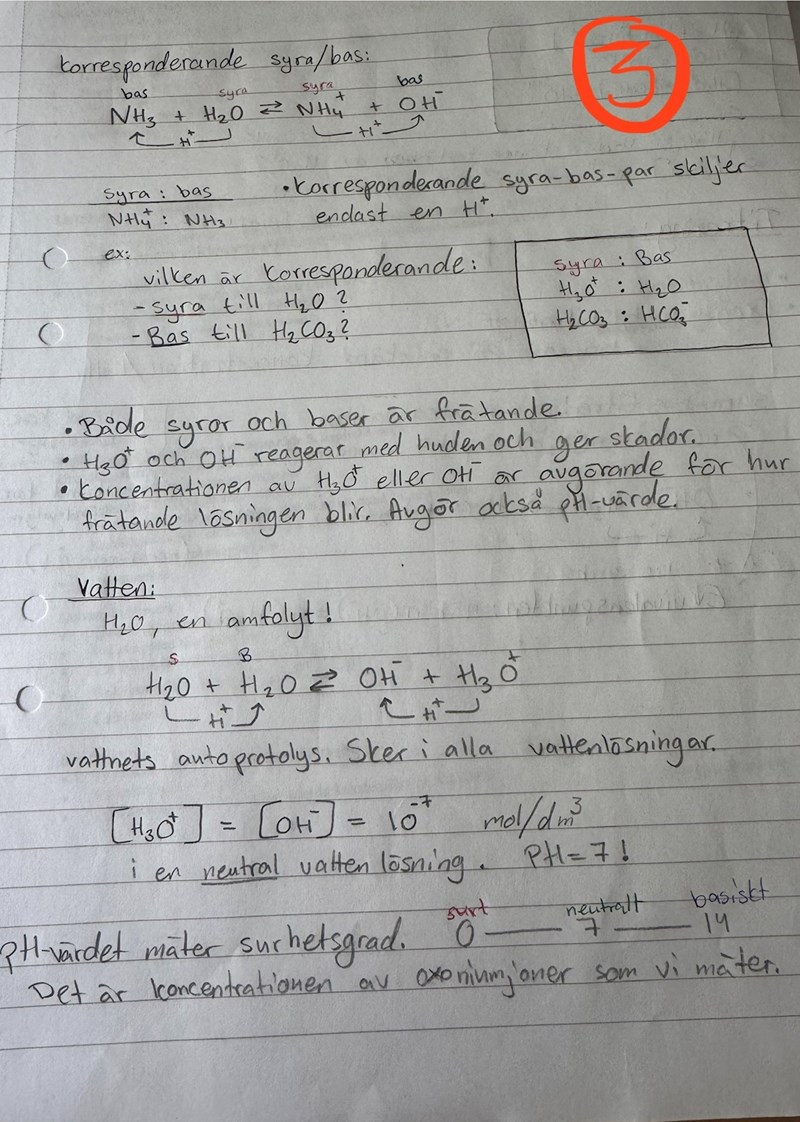 korresponderande syra/bas:
3
bas syra syra bas
NH₃ + H₂O ⇄ NH₄⁺ + OH⁻
H⁺ H⁺
syra : bas
NH₄⁺ : NH₃
• korresponderande syra-bas-par skiljer
endast en H⁺.
ex:
vilken är korresponderande:
- syra till H₂O?
- Bas till H₂CO₃?
syra : Bas
H₃O⁺ : H₂O
H₂CO₃ : HCO₃⁻
• Både syror och baser är frätande.
• H₃O⁺ och OH⁻ reagerar med huden och ger skador.
• Koncentrationen av H₃O⁺ eller OH⁻ är avgörande för hur
frätande lösningen blir. Avgör också pH-värde.
Vatten:
H₂O, en amfolyt!
S B
H₂O + H₂O ⇄ OH⁻ + H₃O⁺
H⁺ H⁺
vattnets autoprotolys. Sker i alla vattenlösningar.
[H₃O⁺] = [OH⁻] = 10⁻⁷ mol/dm³
i en neutral vatten lösning. PH=7!
surt neutralt basiskt
0 — 7 — 14
pH-värdet mäter surhetsgrad.
Det är koncentrationen av oxoniumjoner som vi mäter.